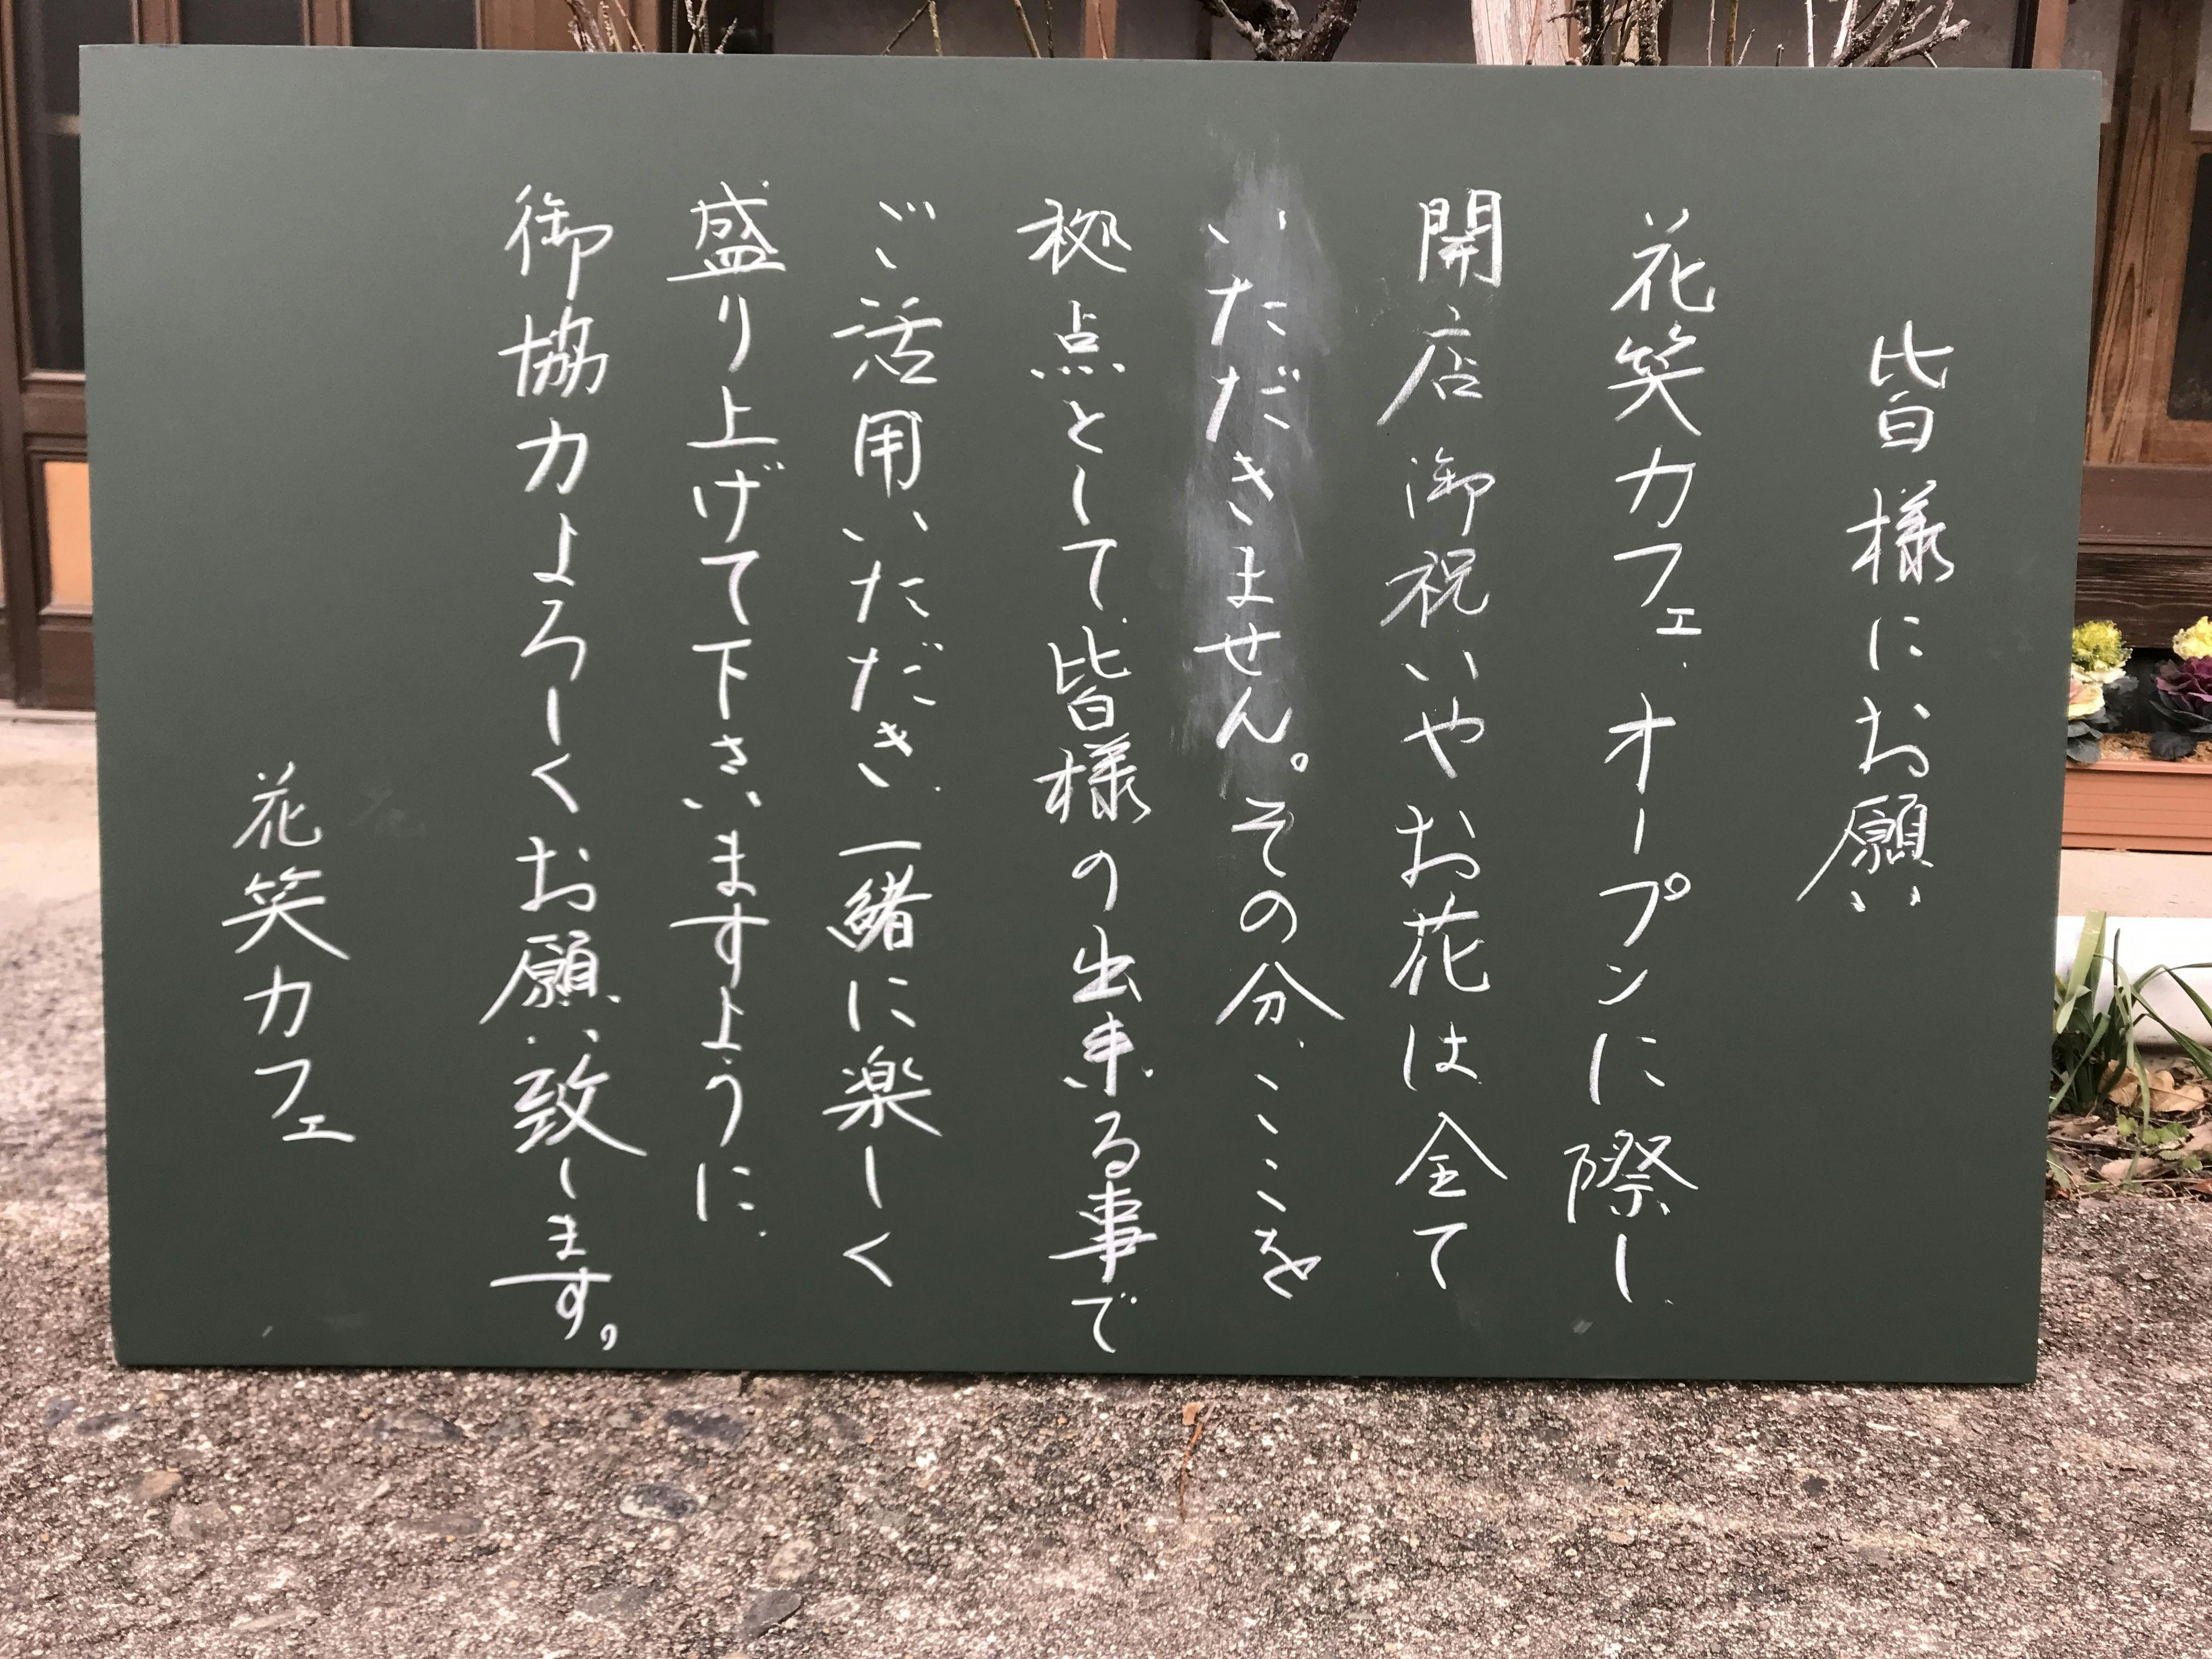 皆様にお願い
花笑カフェ、オープンに際し、
開店御祝いやお花は全て
いただきません。その分、ここを
拠点として、皆様の出来る事で
ご活用いただき、一緒に楽しく
盛り上げて下さいますように、
御協力よろしくお願い致します。
花笑カフェ